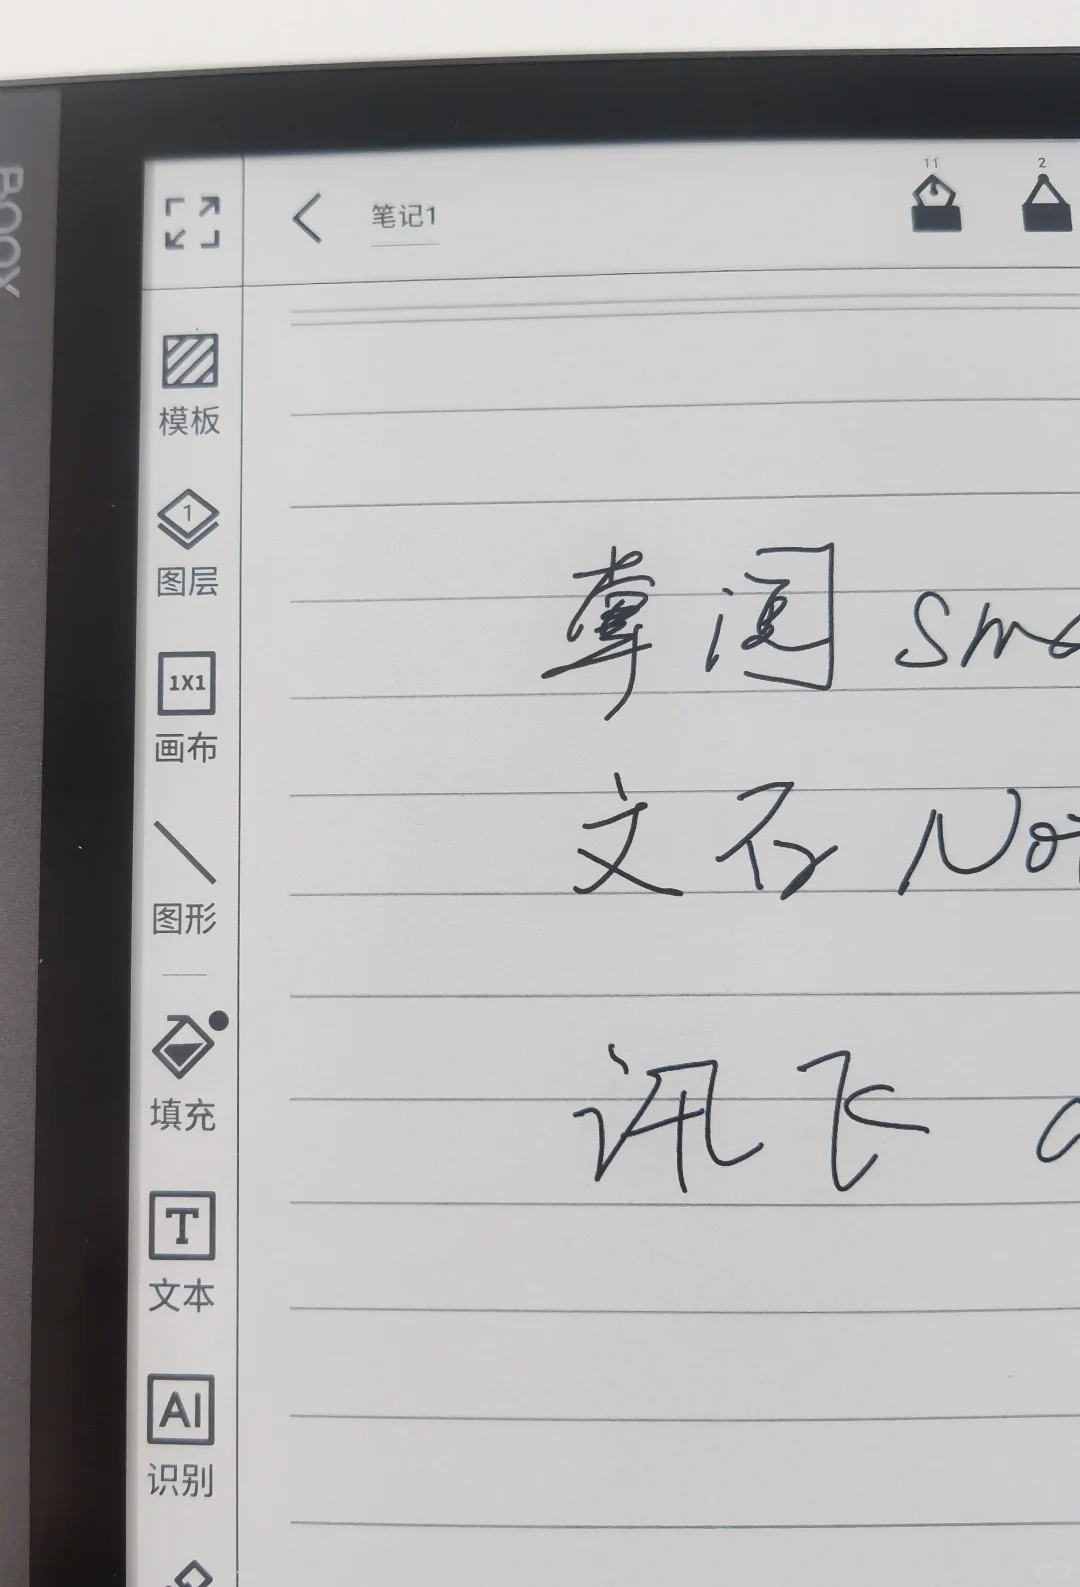 BOOX
笔记1
11
2
模板
1
图层
1X1
画布
图形
填充
T
文本
AI
识别
掌阅 sma
文石 Not
讯飞